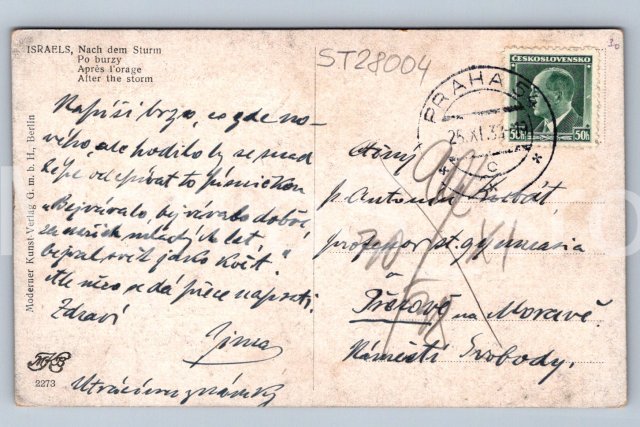 ISRAELS, Nach dem Sturm
Po burzy
Après l'orage
After the storm
ST28004
ČESKOSLOVENSKO
50h 50h
PRAHA
25.XI.3
C
Napíši brzo, co je de no-
vého, ale hodilo by se snad
lépe odepívat to písničkou
"Bejvávalo, bejvávalo dobře
za našich mladých let
bejval svět jako květ."
Ale něco se dá přece napsati.
Zdraví
Jima
Ctěný
p. Antonín
professor st. gymnasia
v
Přerově na Moravě.
Náměstí Svobody.
XI
Moderner Kunst-Verlag G. m. b. H., Berlin
2273